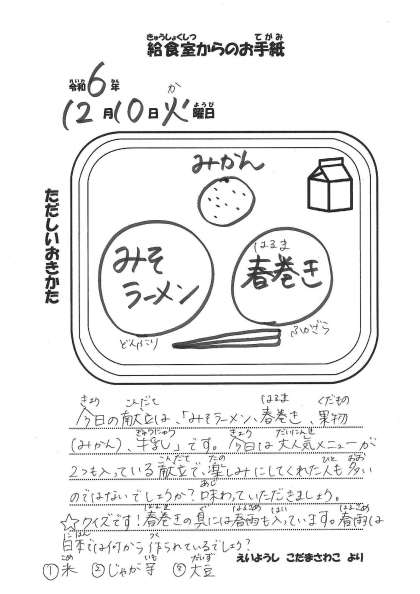 給食室からのお手紙
令和6年
12月10日火曜日
ただしいおきかた
みかん
みそ
ラーメン
春巻き
どんぶり
ふかざら
今日の献立は、「みそラーメン、春巻き、果物
(みかん)、牛乳」です。今日は大人気メニューが
2つも入っている献立で、楽しみにしてくれた人も多い
のではないでしょうか?味わっていただきましょう。
☆クイズです!春巻きの具には春雨も入っています。春雨は
日本では何から作られているでしょう?
①米 ②じゃが芋 ③大豆
えいようし こだまさわこ より